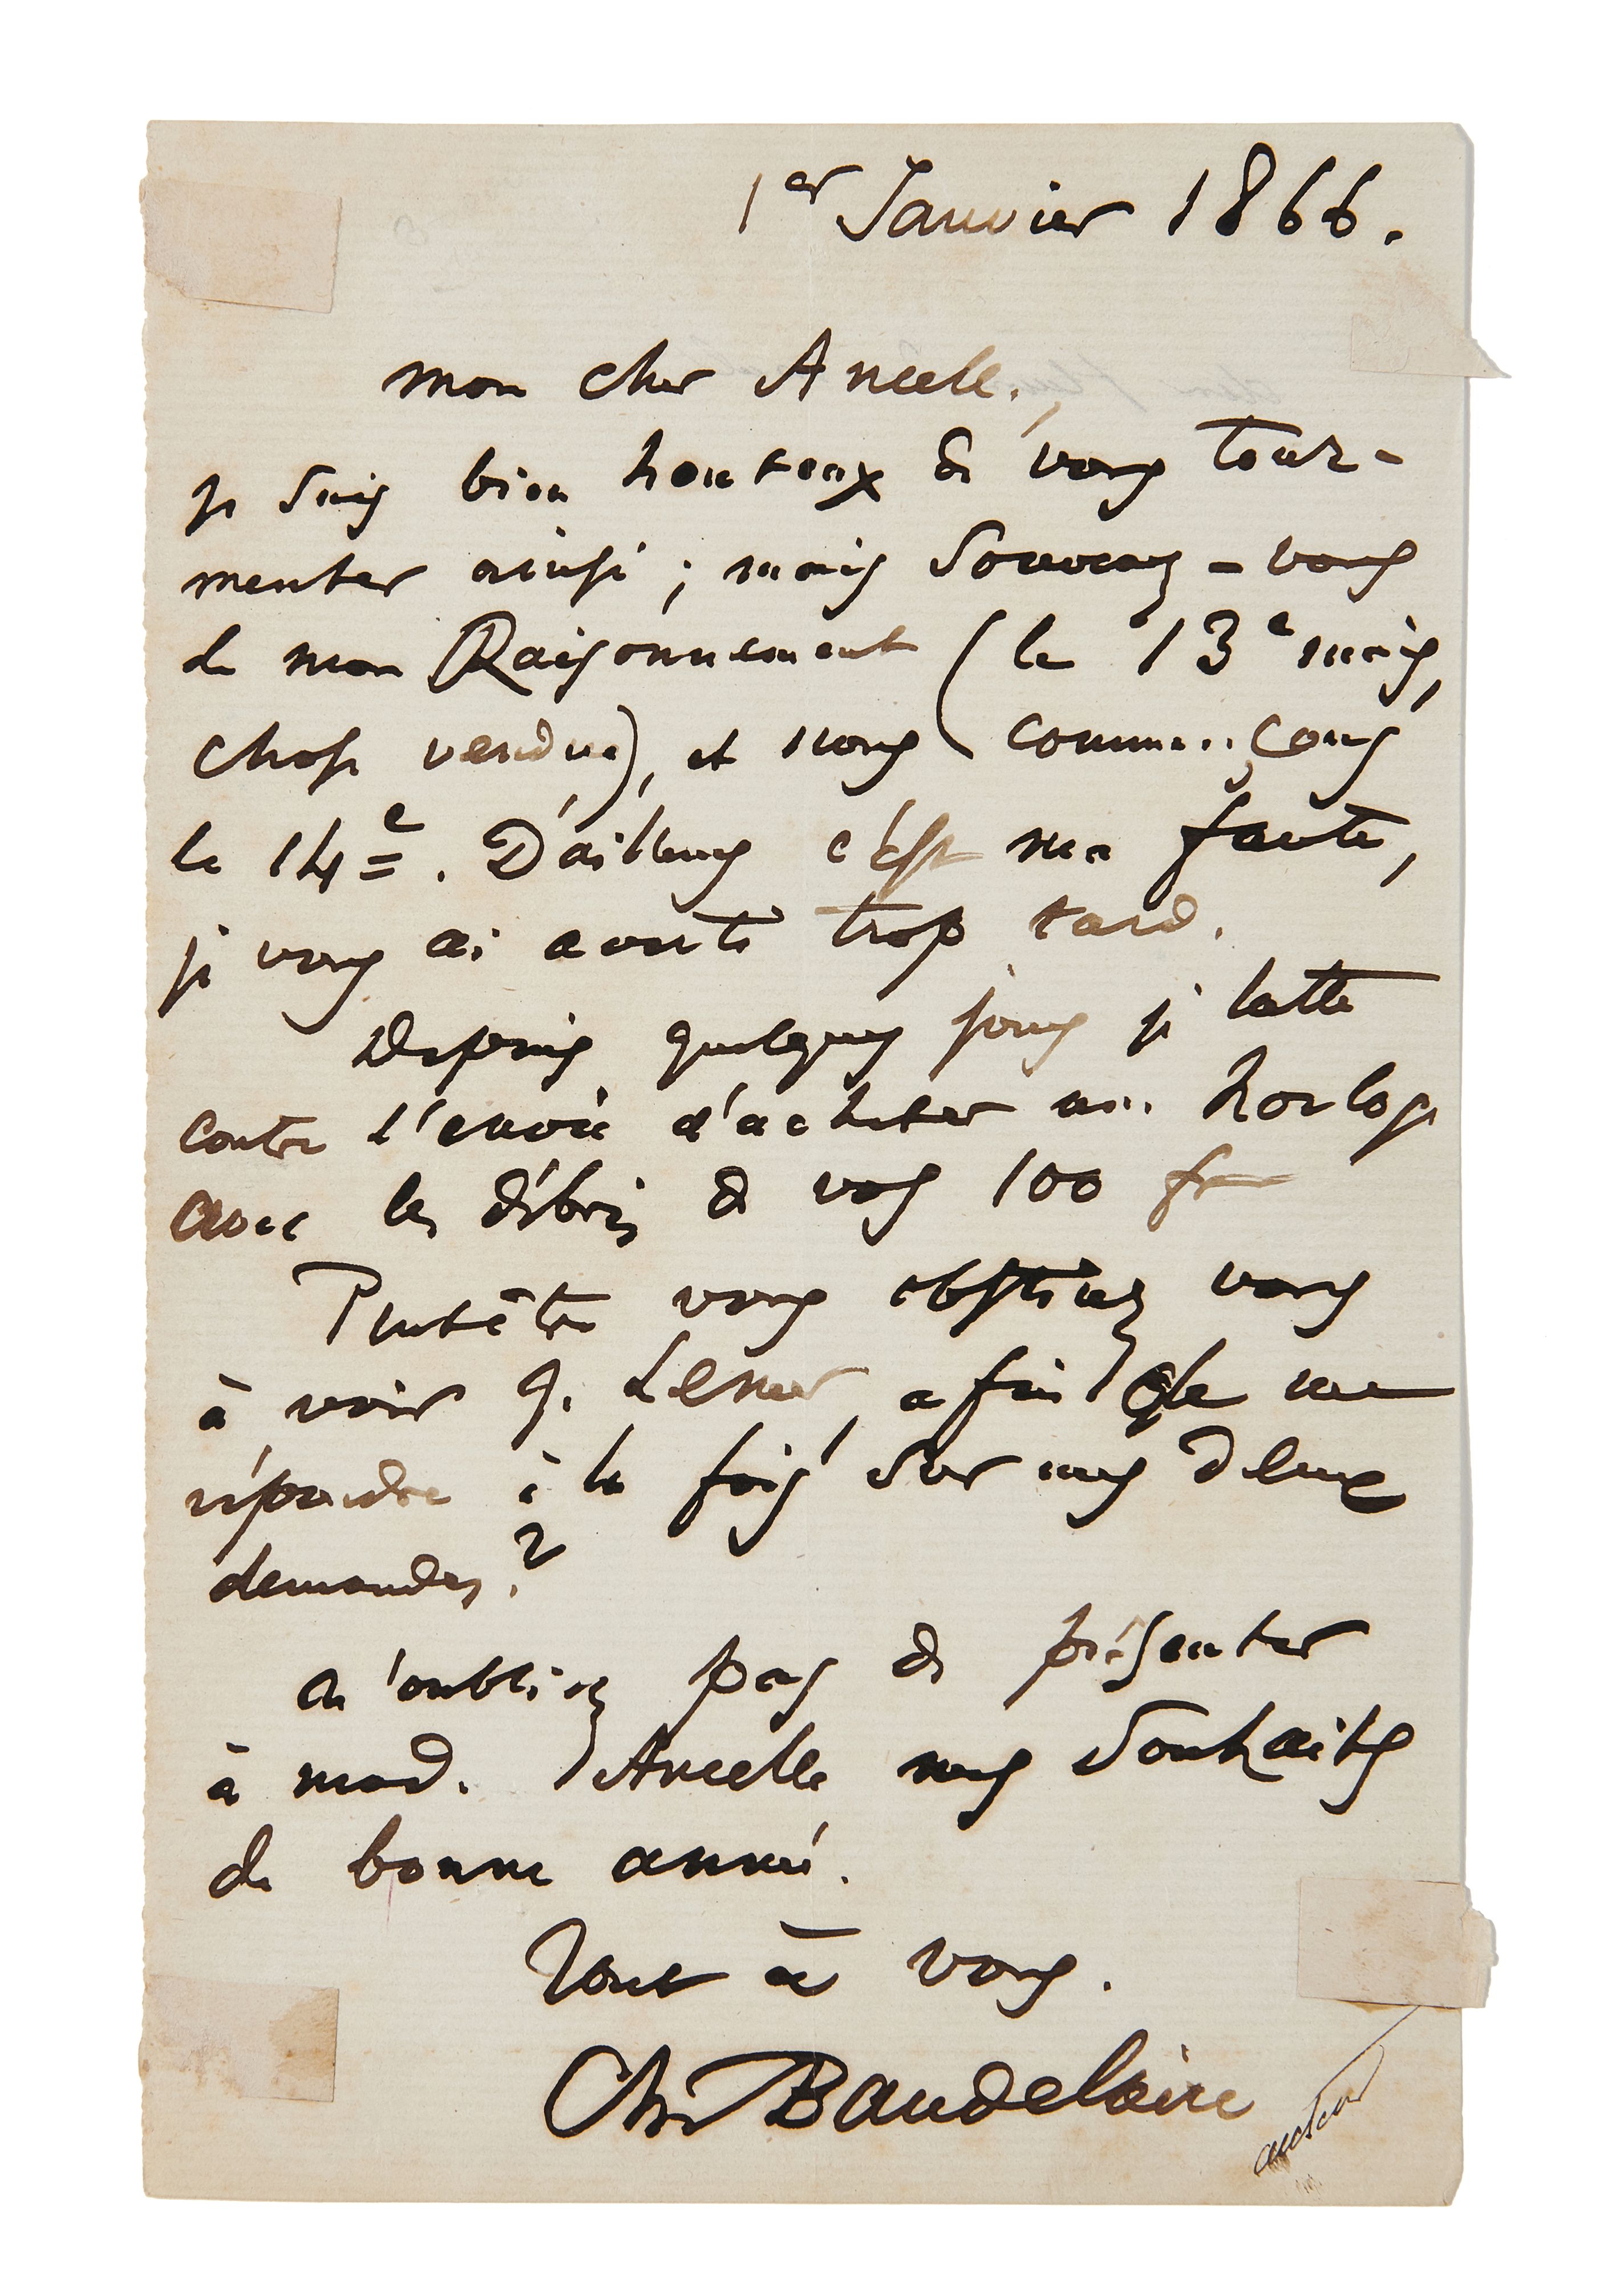 1er Janvier 1866.
mon cher Ancelle,
je suis bien honteux de vous tour-
menter ainsi ; mais souvenez-vous
de mon Raisonnement (le 13e mois,
chose vendue), et nous commençons
le 14e. D'ailleurs c'est ma faute,
je vous ai averti trop tard.
Depuis quelques jours je lutte
contre l'envie d'acheter une horloge
avec les débris de vos 100 fr
Peutêtre vous obstinez vous
à voir Lemer, afin de me
répondre à la fois sur mes deux
demandes ?
N'oubliez pas de présenter
à mad. Ancelle mes souhaits
de bonne année.
Tout à vous.
Ch. Baudelaire
auteur